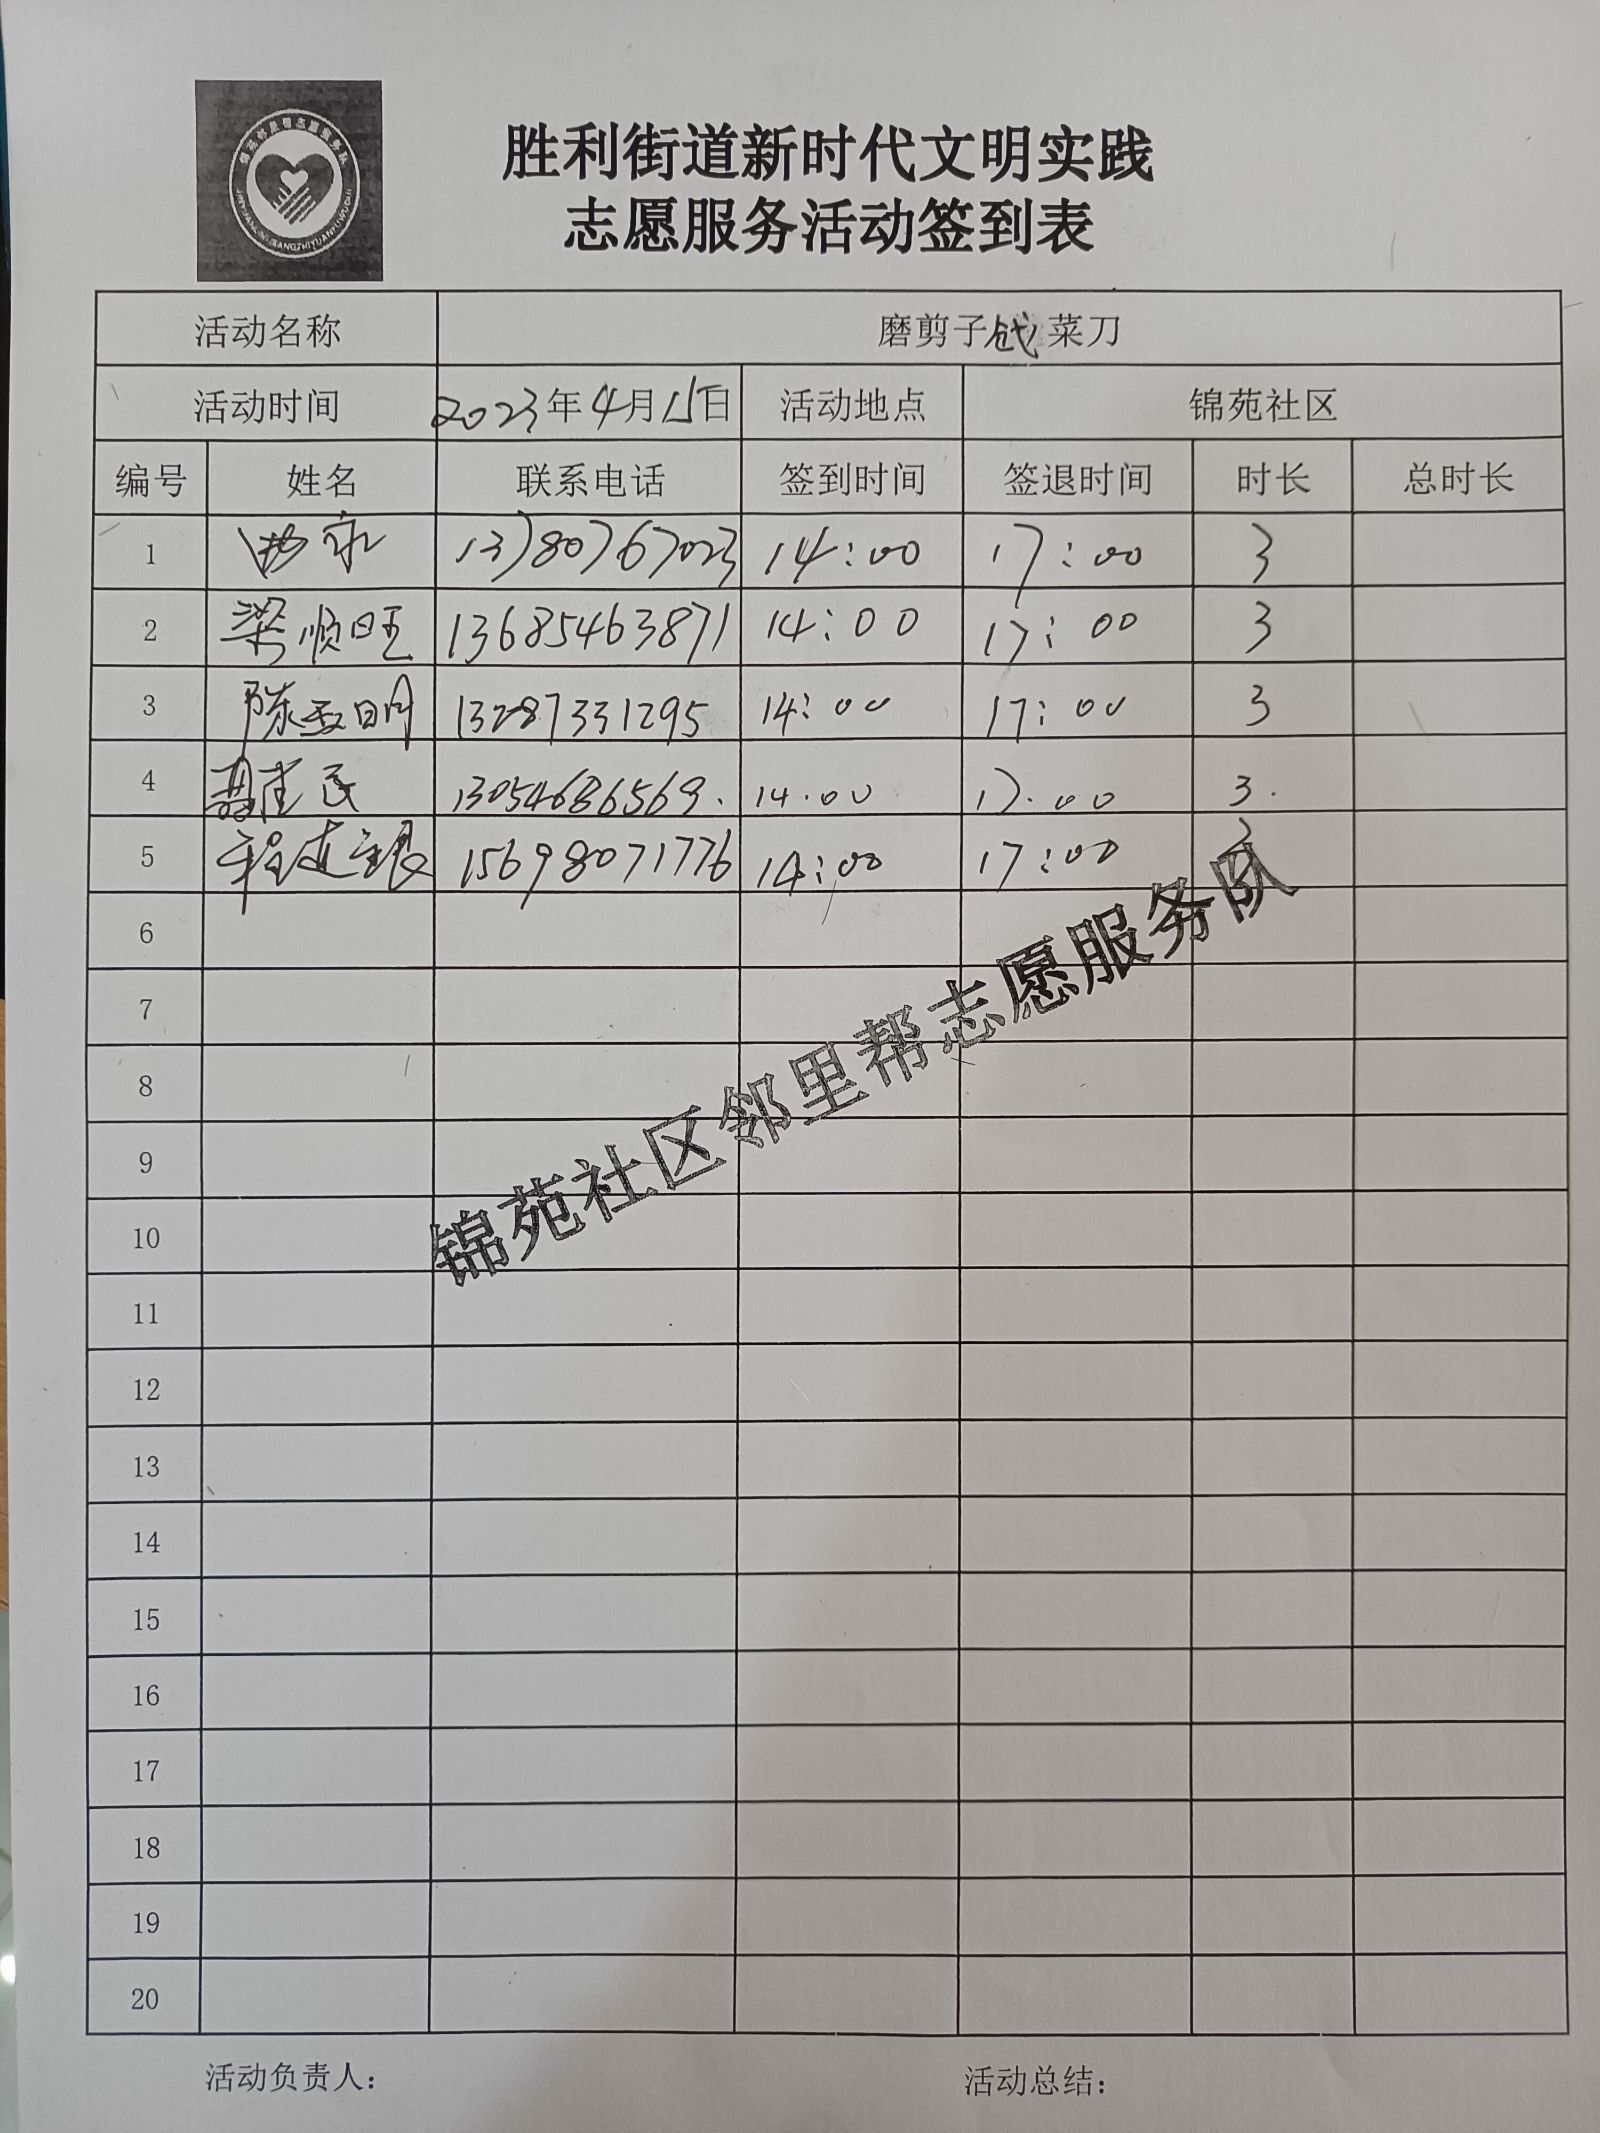 胜利街道新时代文明实践
志愿服务活动签到表
活动名称 磨剪子 菜刀
活动时间 2023年4月15日 活动地点 锦苑社区
编号 姓名 联系电话 签到时间 签退时间 时长 总时长
1 13780767023 14:00 17:00 3
2 梁顺旺 13685463871 14:00 17:00 3
3 陈 明 13287331295 14:00 17:00 3
4 民 13054686569. 14.00 17.00 3.
5 程建银 15698071776 14:00 17:00 3
6
7
8
9
10
11
12
13
14
15
16
17
18
19
20
锦苑社区邻里帮志愿服务队
活动负责人: 活动总结: